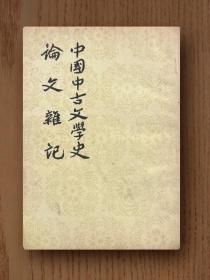 中國中古文學史
論文雜記